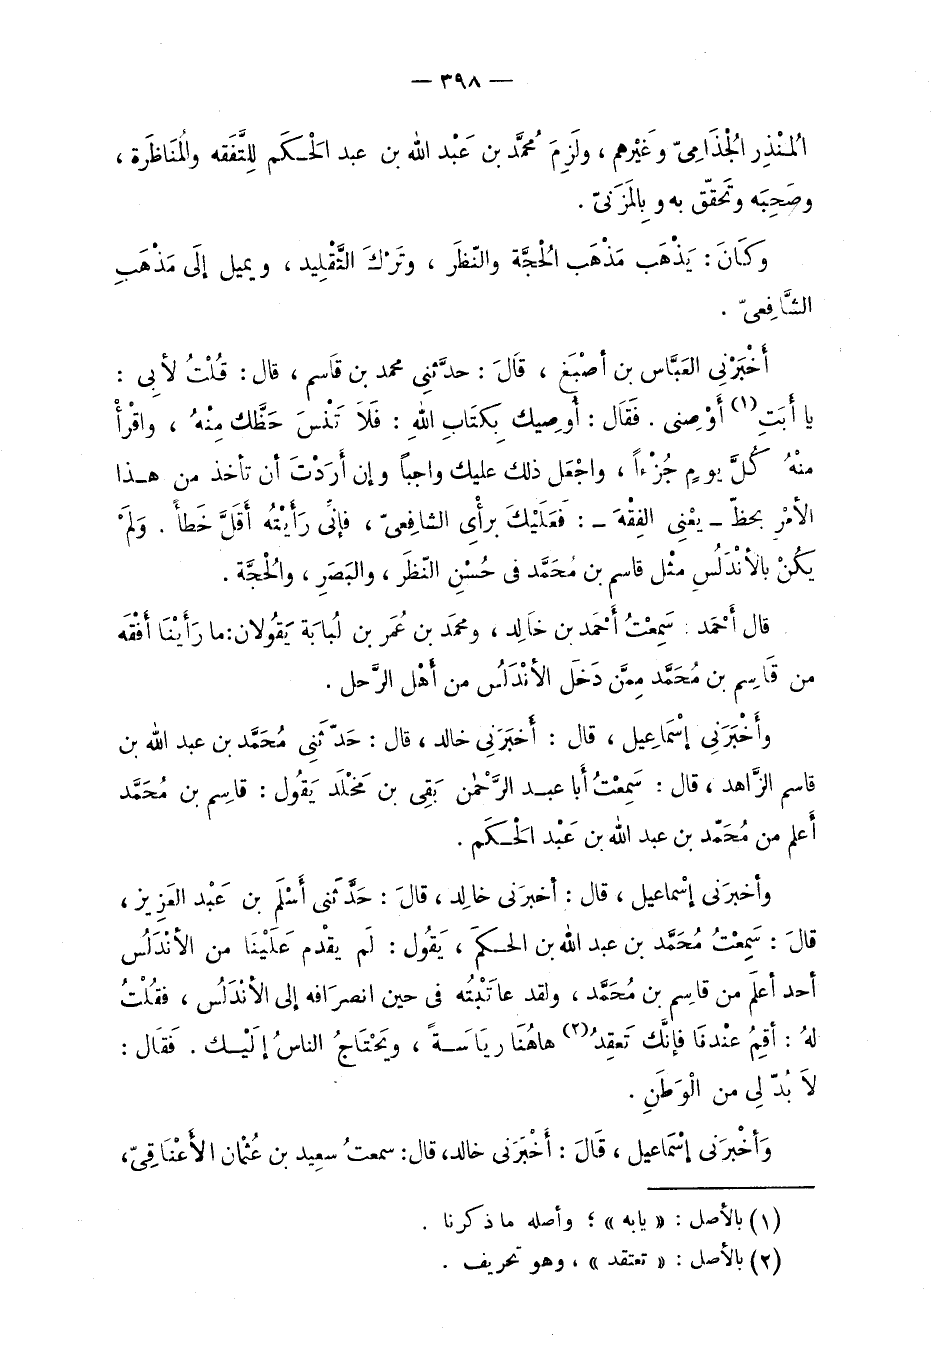 — ٣٩٨ —
المُنْذِر الجُذَامِىّ وغَيْرهم ، ولَزِمَ مُحمَّد بن عَبْد الله بن عبد الحَكَم لِلتَّفَقه والمُنَاظَرة ،
وصَحِبَه وتَحَقّق به و بِالمَزَنىّ .
وكَانَ : يَذْهَب مَذْهَب الحُجَّة والنّظَر ، وتَرْك التَّقْلِيد ، ويميل إلَى مَذْهَبِ
الشَّافِعىّ .
أَخْبَرْنِى العَبَّاس بن أصْبَغ ، قَالَ : حدَّثنِى محمد بن قَاسم ، قال : قُلْتُ لأبِى :
يا أَبَتِ (١) أَوْصِنى . فَقَال : أُوصِيك بِكتَابِ اللهِ : فَلَا تَنْسَ حَظَّك مِنْهُ ، واقْرأْ
منْهُ كُلَّ يومٍ جُزْءاً ، واجْعَل ذلك عليك واجباً وإن أرَدْتَ أن تأخذ من هـذا
الأمْرِ بحظّ ــ يعْنِى الفِقْهَ ــ : فَعَلَيْكَ برأْىِ الشافِعىّ ، فإنِّى رَأَيْتُهُ أَقَلَّ خَطأً . وَلَمْ
يكُنْ بالأنْدَلُسِ مثْل قاسم بن مُحَمَّد فى حُسْنِ النّظَر ، والبَصَرِ ، والحُجَّة .
قال أحْمَد : سَمِعْتُ أَحْمَد بن خَالِد ، ومحمَد بن عُمَر بن لُبابَة يَقُولان: ما رَأَيْنَا أَفْقَه
من قَاسِم بن مُحَمَّد مِمَّن دَخَلَ الأنْدَلُس من أَهْل الرَّحل .
وأَخْبَرَنِى إسْمَاعِيل ، قال : أَخبَرَنِى خالد ، قال : حَدّثَنِى مُحَمَّد بن عبد الله بن
قاسم الزَّاهد ، قال : سَمِعْتُ أبا عبـد الرَّحْمٰن بَقِى بن مَخْلَد يَقُول : قاسِم بن مُحَمَّد
أَعلم من مُحَمّد بن عبد الله بن عَبْد الحَكَم .
وأخبرَنى إسْماعيل ، قال : أخبرَنى خالِد ، قالَ : حَدَّثَنى أَسْلَم بن عَبْد العَزِيز ،
قالَ : سَمِعْتُ مُحَمَّد بن عبد الله بن الحـكمَ ، يَقُول : لَم يقْدم عَلَيْنَا من الأنْدَلُس
أحد أعلَم من قاسِم بن مُحَمَّد ، ولقد عاتَبْتُه فى حين انصرَافه إلى الأنْدَلُس ، فقُلْتُ
لهُ : أقمِ عنْدنَا فإنَّك تَعقِدُ (٢) هاهُنَا رِيَاسَـةً ، ويَحْتاجُ الناسُ إلَيْـك . فَقَال :
لَا بُدّ لِى من الْوَطَنِ .
وَأَخْبرَنى إسْمَاعيل ، قَالَ : أَخْبَرَنى خالد، قال: سمعتُ سعِيد بن عُثْمان الأَعْنَاقِىّ،
(١) بالأصل : « يابه » ؛ وأصله ما ذكرنا .
(٢) بالأصل : « تعتقد » ، وهو تحريف .